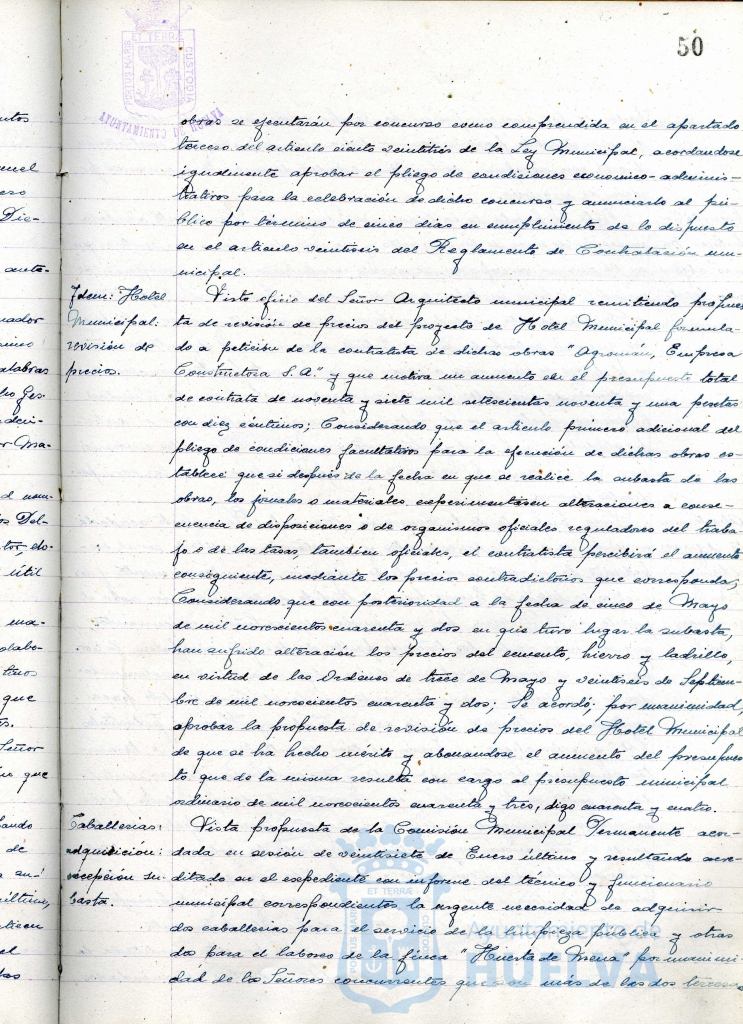 50
PORTUS MARIS ET TERRÆ CUSTODIA
AYUNTAMIENTO DE HUELVA
obras se ejecutarán por concurso como comprendida en el apartado
tercero del articulo ciento veintitrés de la Ley Municipal, acordandose
igualmente aprobar el pliego de condiciones economico-adminis-
trativas para la celebración de dicho concurso y anunciarlo al pú-
blico por término de cinco dias en cumplimiento de lo dispuesto
en el articulo veintiseis del Reglamento de Contratación mu-
nicipal.
Idem: Hotel
Municipal:
revisión de
precios.
Visto oficio del Señor Arquitecto municipal remitiendo propues
ta de revisión de precios del proyecto de Hotel Municipal formula-
do a petición de la contratista de dichas obras "Agromán, Empresa
Constructora S.A." y que motiva un aumento en el presupuesto total
de contrata de noventa y siete mil setecientas noventa y una pesetas
con diez céntimos; Considerando que el articulo primero adicional del
pliego de condiciones facultativas para la ejecución de dichas obras es-
tablece que si despues de la fecha en que se realice la subasta de las
obras, los jornales o materiales experimentasen alteraciones a conse-
cuencia de disposiciones o de organismos oficiales reguladores del traba-
jo o de las tasas, tambien oficiales, el contratista percibirá el aumento
consiguiente, mediante los precios contradictorios que corresponda;
Considerando que con posterioridad a la fecha de cinco de Mayo
de mil novecientos cuarenta y dos en que tuvo lugar la subasta,
han sufrido alteración los precios del cemento, hierro y ladrillo,
en virtud de las Ordenes de trece de Mayo y veintiseis de Septiem-
bre de mil novecientos cuarenta y dos; Se acordó, por unanimidad,
aprobar la propuesta de revisión de precios del Hotel Municipal
de que se ha hecho mérito y abonandose el aumento del presupues
to que de la misma resulta con cargo al presupuesto municipal
ordinario de mil novecientos cuarenta y tres, digo cuarenta y cuatro.
Caballerias:
adquisición:
excepción su-
basta.
Vista propuesta de la Comisión Municipal Permanente acor-
dada en sesión de veintisiete de Enero último y resultando acre-
ditado en el expediente con informe del técnico y funcionario
municipal correspondientes la urgente necesidad de adquirir
dos caballerias para el servicio de la limpieza pública y otras
dos para el laboreo de la finca "Huerta de Mena" por unanimi-
dad de los Señores concurrentes que son más de las dos terceras
Ayuntamiento de
HUELVA